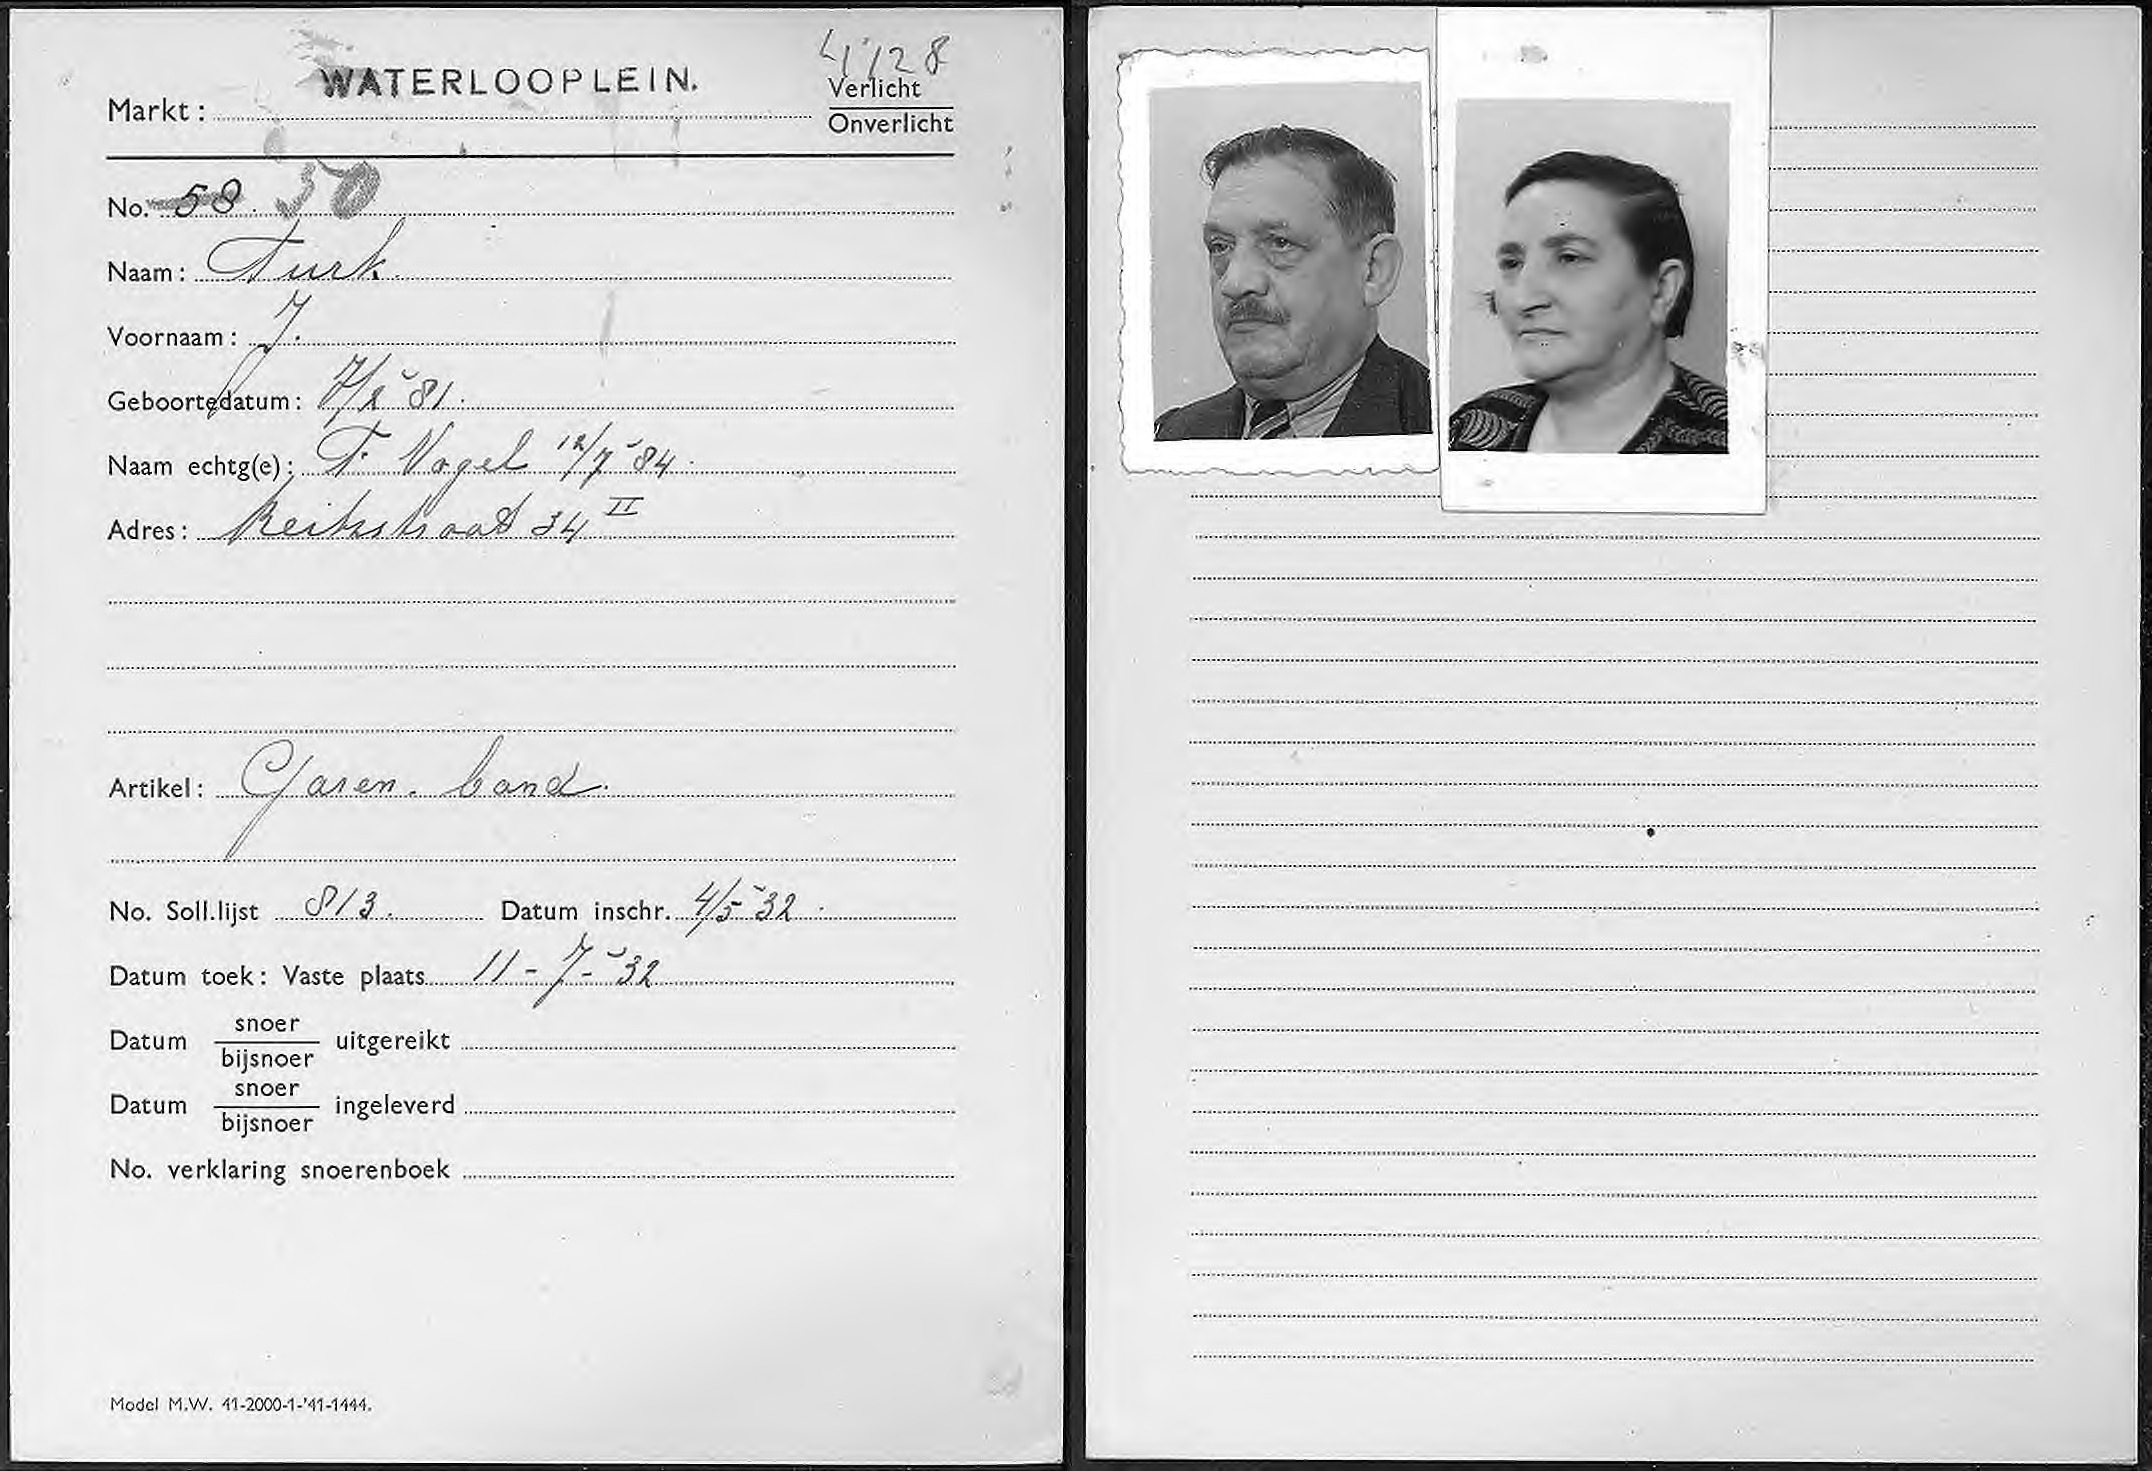 4128
WATERLOOPLEIN.
Markt:
Verlicht
Onverlicht
No. 58. 50
Naam: Turk.
Voornaam: J.
Geboortedatum: 81.
Naam echtg(e): F. Vogel 12/7 '84.
Adres: Reitzstraat 34 II
Artikel: Garen. band.
No. Soll.lijst 813. Datum inschr. 4/5 '32.
Datum toek: Vaste plaats 11-7-'32
Datum snoer / bijsnoer uitgereikt
Datum snoer / bijsnoer ingeleverd
No. verklaring snoerenboek
Model M.W. 41-2000-1-'41-1444.